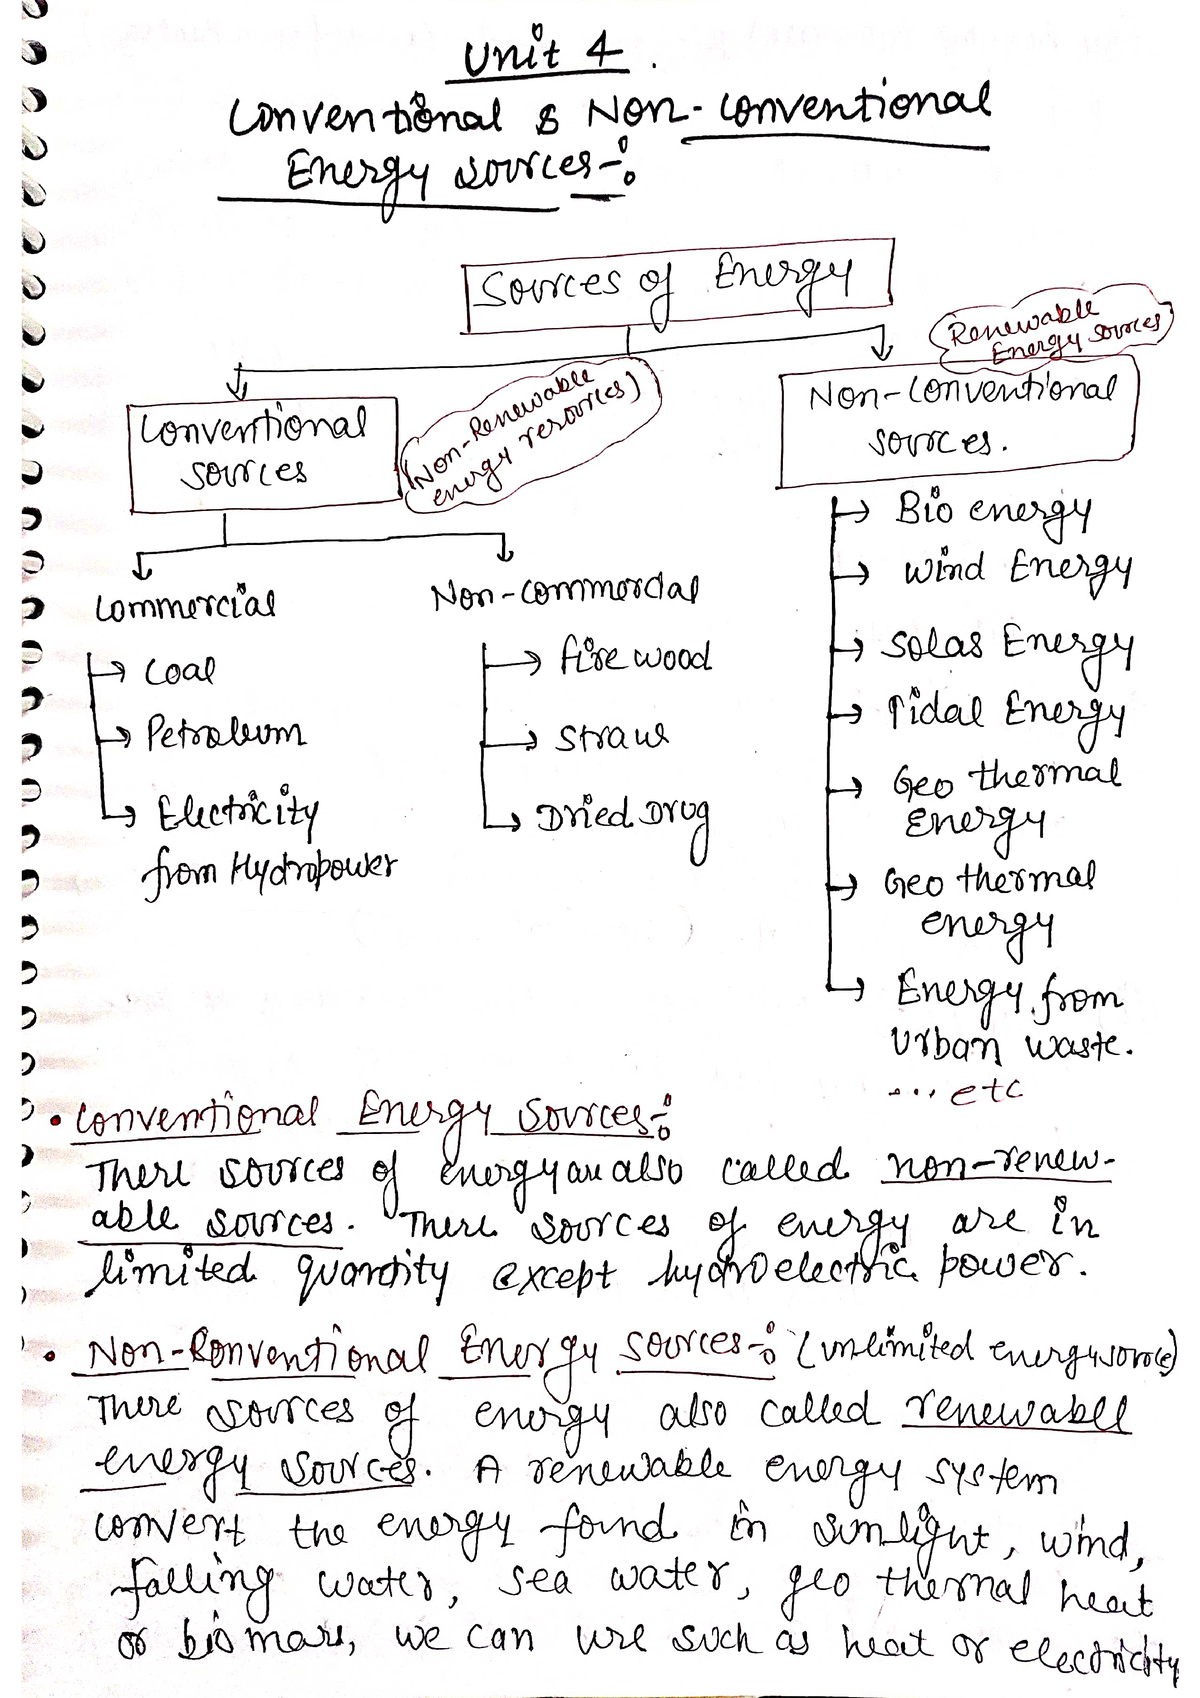 Unit 4.
Conventional & Non-conventional
Energy sources-:
Sources of Energy
Renewable
Energy sources)
(Non-Renewable
energy resources)
Conventional
sources
Non-conventional
sources.
Commercial
Coal
Petroleum
Electricity
from Hydropower
Non-commercial
fire wood
Straw
Dried Drug
Bio energy
Wind Energy
Solar Energy
Tidal Energy
Geo thermal
Energy
Geo thermal
energy
Energy from
Urban waste.
... etc
• Conventional Energy Sources-:
There sources of energy are also called non-renew-
able sources. There sources of energy are in
limited quantity except hydroelectric power.
• Non-Conventional Energy sources-: (unlimited energy source)
There sources of energy also called renewable
energy sources. A renewable energy system
convert the energy found in sunlight, wind,
falling water, sea water, geo thermal heat
or biomass, we can use such as heat or electricity